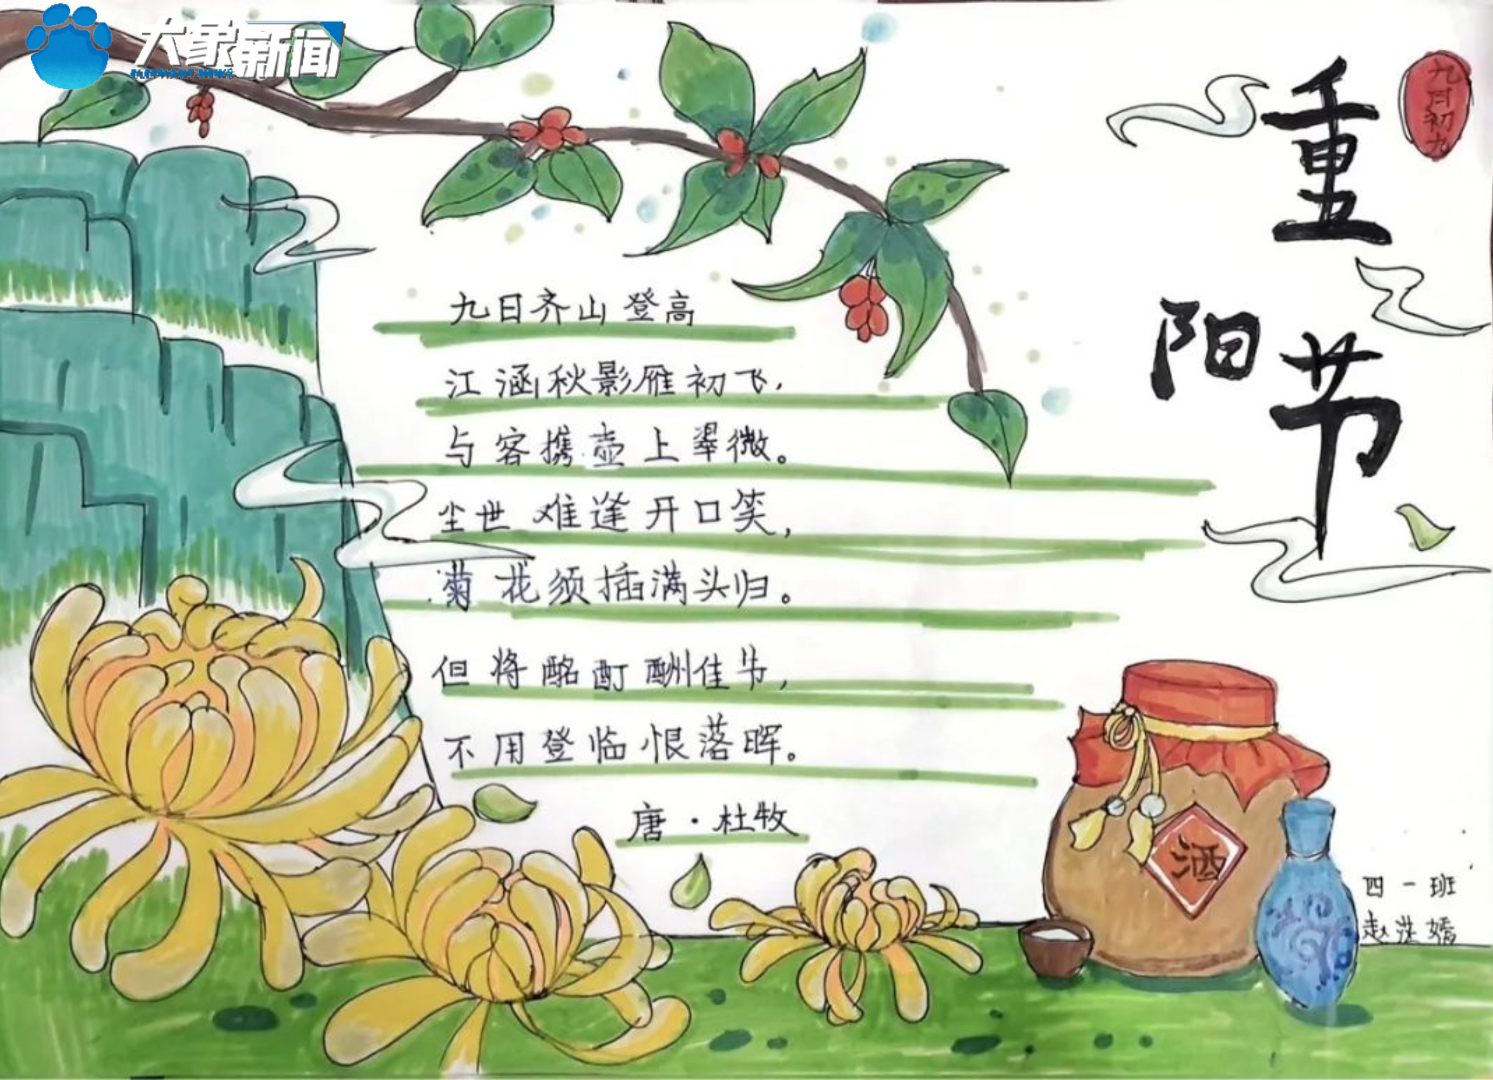 大象新闻
ELEPHANT NEWS
九月初九
重阳节
九日齐山登高
江涵秋影雁初飞,
与客携壶上翠微。
尘世难逢开口笑,
菊花须插满头归。
但将酩酊酬佳节,
不用登临恨落晖。
唐·杜牧
酒
四一班